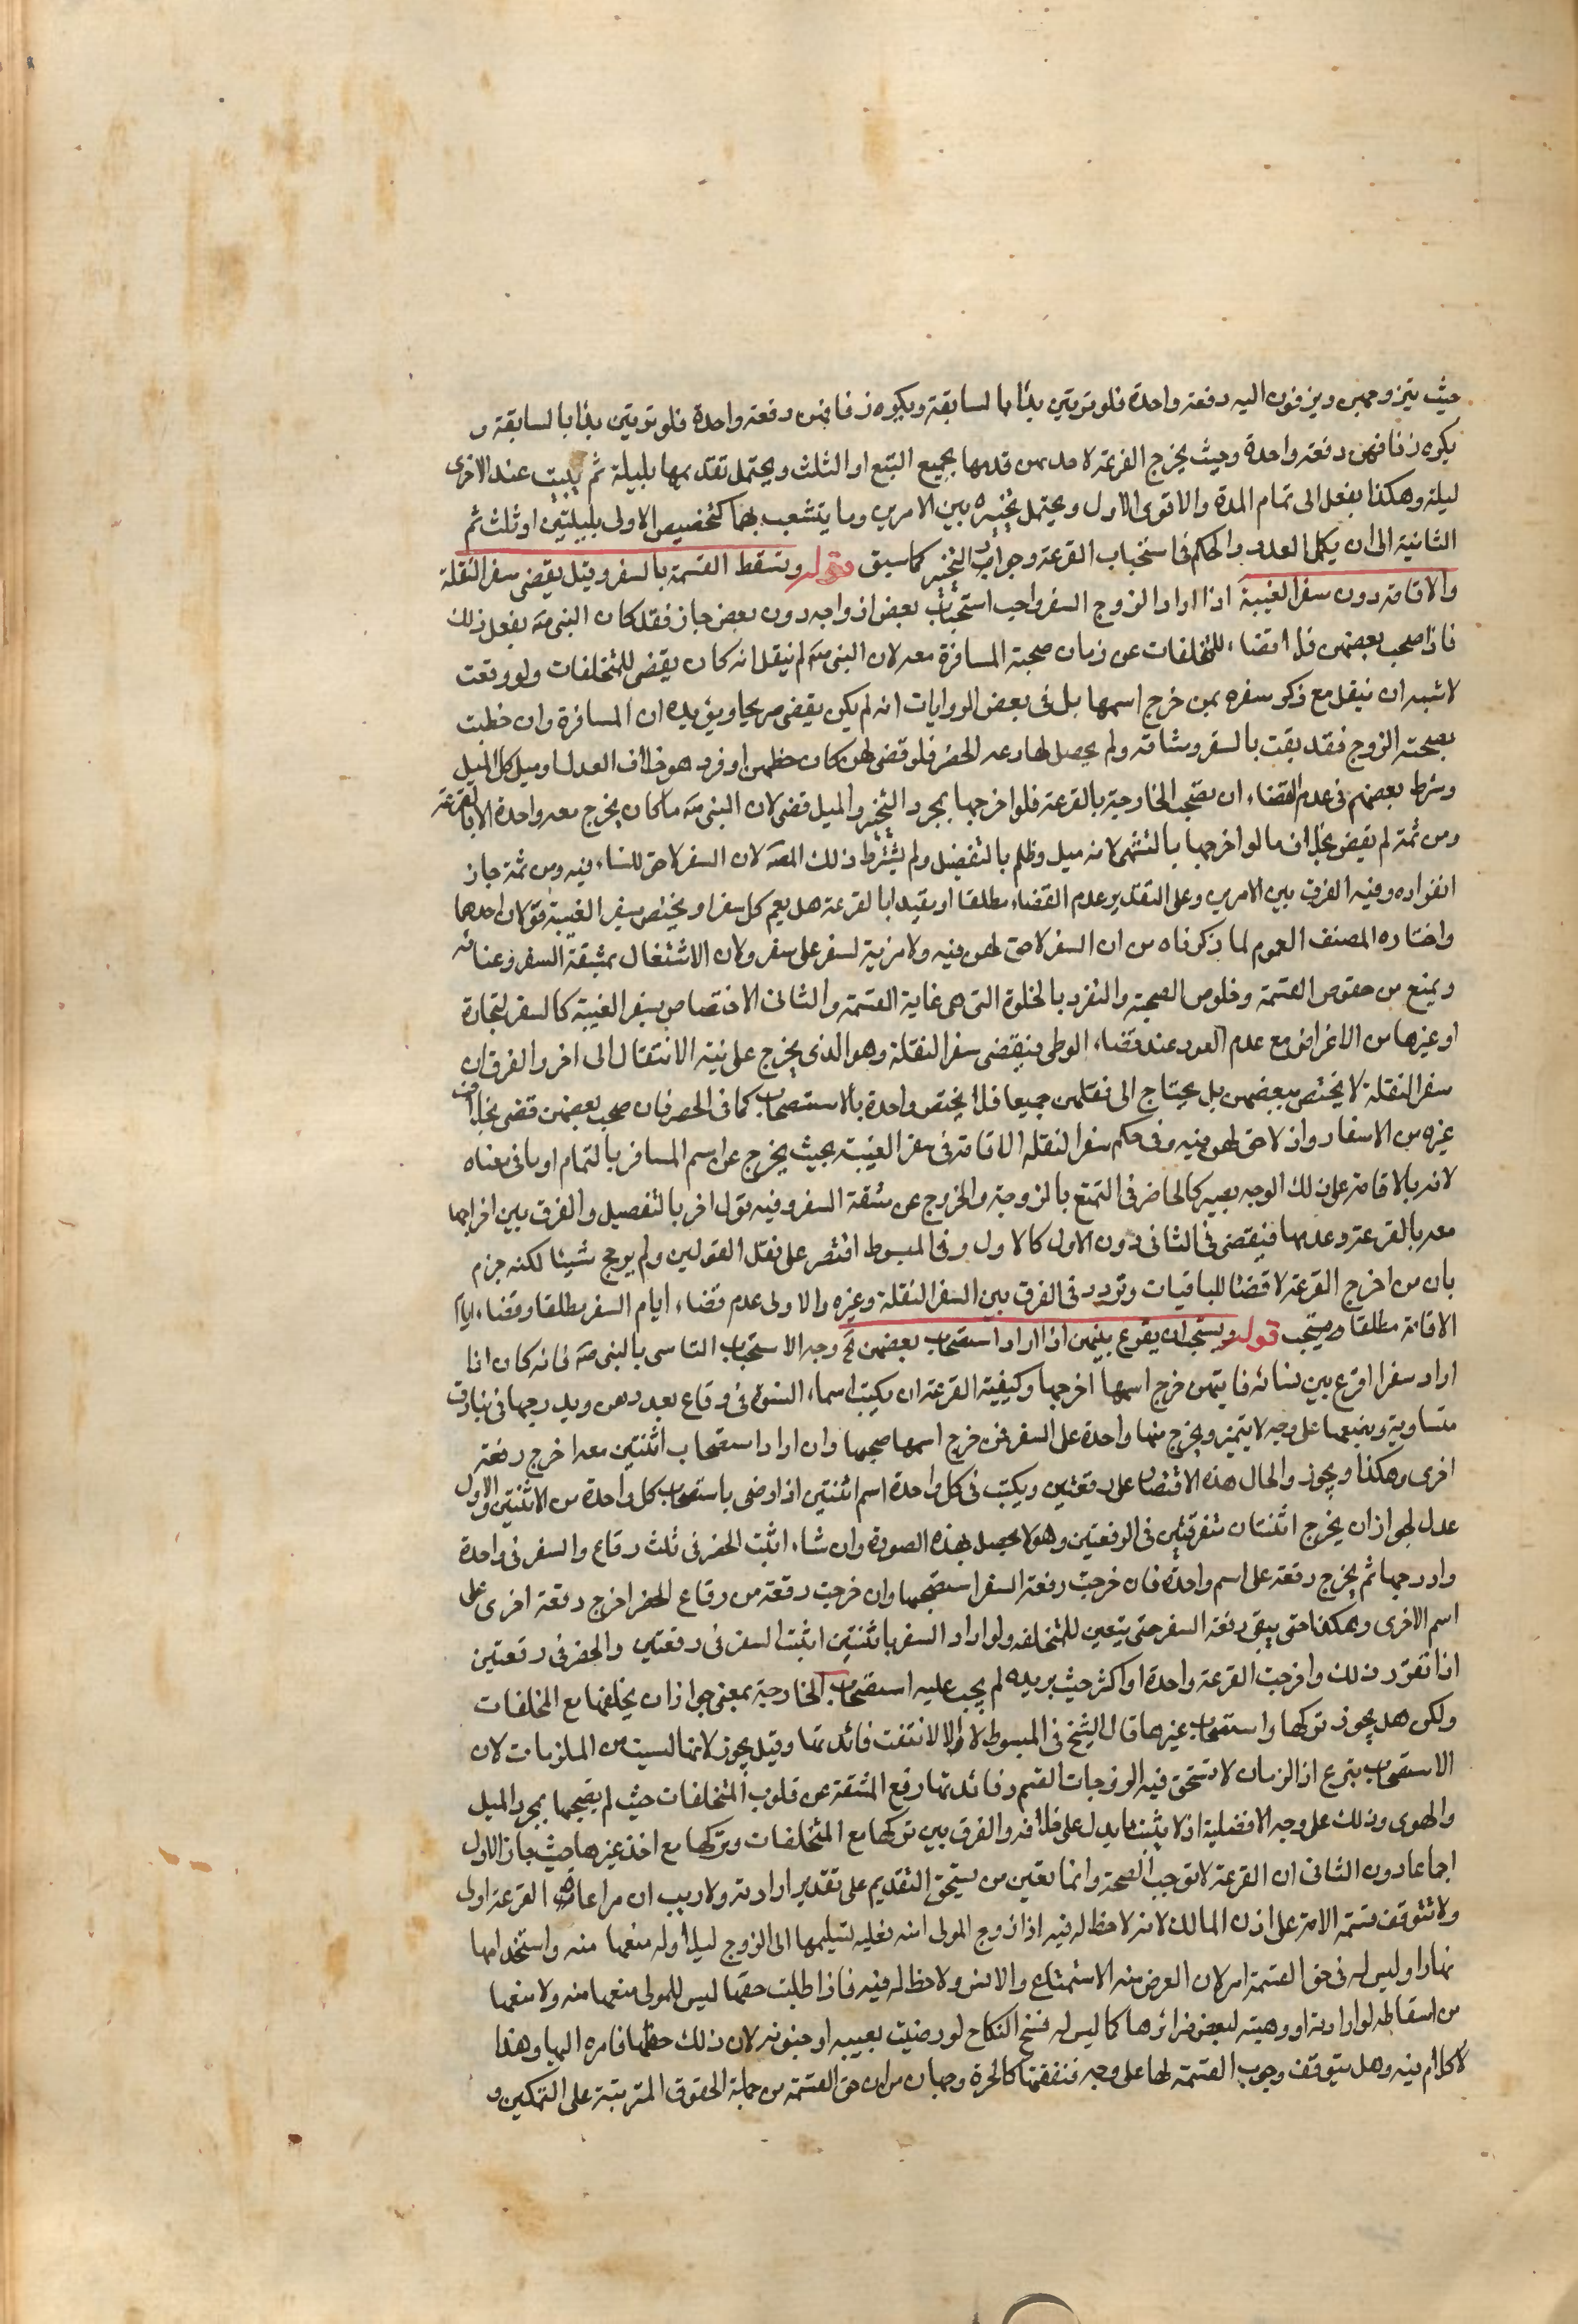 حيث يتزوجهن ويزفون اليه دفعة واحدة فلو ترتبن بدأ بالسابقة ويكره زفافهن دفعة واحدة فلو ترتبن بدأ بالسابقة و
يكره زفافهن دفعة واحدة وحيث يخرج القرعة لاحديهن قدمها بجميع السبع او الثلث ويحتمل تقديمها بليلة ثم يبيت عند الاخرى
ليلة وهكذا يفعل الى تمام المدة والاقوى الاول ويحتمل تخيره بين الامرين وما يتشعب بهما كتخصيص الاولى بليلتين او ثلث ثم
الثانية الى ان يكمل العدد والحكم في استحباب القرعة وجواز التخير كما سبق قوله وتسقط القسمة بالسفر وقيل يقضى سفر النقلة
والاقامة دون سفر الغيبة اذا اراد الزوج السفر واحب استصحاب بعض ازواجه دون بعض جاز فقد كان النبي صه يفعل ذلك
فاذا صحب بعضهن فلا قضاء للمتخلفات عن زمان صحبته المسافرة معه لان النبي صه لم ينقل انه كان يقضى للمتخلفات ولو وقعت
لاشبه ان ينقل مع ذكر سفره بمن خرج اسمها بل في بعض الروايات انه لم يكن يقضى صريحا ويؤيده ان المسافرة وان حظيت
بصحبة الزوج فقد بقيت بالسفر ومشاقه ولم يحصل لها دعة الحضر فلو قضى لهن كان حظهن اوفر وهو خلاف العدل وميل كل الميل
وشرط بعضهم في عدم القضاء ان يصحب الخارجة بالقرعة فلو اخرجها بمجرد التخير والميل قضى لان النبي صه ما كان يخرج معه واحدة الا بالقرعة
ومن ثمة لم يقض بخلاف ما لو اخرجها بالتشهى لانه ميل وظلم بالتفضيل ولم يشترط ذلك المصه لان السفر لا حق للنساء فيه ومن ثمة جاز
انفراده وفيه الفرق بين الامرين وعلى التقدير عدم القضاء مطلقا او بقيد ابا لقرعة هل يعم كل سفر او يختص بسفر الغيبة قولان احدهما
واختاره المصنف العموم لما ذكرناه من ان السفر لا حق لهن فيه ولا مزية لسفر على سفر ولان الاشتغال بمشقة السفر وعنائه
ويمنع من حقوق القسمة وخلوص الصحبة والتفرد بالخلوة التي هي غاية القسمة والثاني الاختصاص بسفر الغيبة كالسفر لتجارة
او غيرها من الاغراض مع عدم العود عند قضاء الوطر فيقضى سفر النقلة وهو الذي يخرج على نية الانتقال الى اخر والفرق ان
سفر النقلة لا يختص ببعضهن بل يحتاج الى نقلهن جميعا فلا يختص واحدة بالاستصحاب كما في الحضر فان صحب بعضهن قضى بخلاف
غيره من الاسفار واذ لا حق لهن فيه وفي حكم سفر النقله الاقامة في سفر الغيبة بحيث يخرج عن اسم المسافر بالتمام او ما في معناه
لانه بالاقامة على ذلك الوجه يصير كالحاضر في التمتع بالزوجة والخروج عن مشقة السفر وفيه قول اخر بالتفصيل والفرق بين اخراجها
معه بالقرعة وعدمها فيقضى في الثاني دون الاول كالاول وفي المبسوط اقتصر على نقل القولين ولم يرجح شيئا لكنه جزم
بان من اخرج القرعة لا قضئا للباقيات وتردد في الفرق بين السفر النقلة وغيره والاولى عدم قضاء ايام السفر مطلقا وقضاء ايام
الاقامة مطلقا قوله ويستحب ان يقرع بينهن اذا اراد استصحاب بعضهن وجه الاستحباب التاسي بالنبي صه فانه كان اذا
اراد سفرا اقرع بين نسائه فايتهن خرج اسمها اخرجها وكيفية القرعة ان يكتب اسماء النسوة في رقاع بعددهن ويدرجها في بنادق
متساوية ويضعها على وجه لا يتميز ويخرج منها واحدة على السفر فمن خرج اسمها صحبها وان اراد استصحاب اثنتين معه اخرج رقعة
اخرى وهكذا ويجوز والحال هذه الاقتصار على رقعتين ويكتب في كل واحدة اسم اثنتين اذا رضى باستصحاب كل واحدة من الاثنتين والاول
عدل لجواز ان يخرج اثنتان متفرقتين في الرقعتين وهو لا يحصل بهذه الصورة وان شاء اثبت الحضر في ثلث رقاع والسفر في واحدة
وادرجها ثم يخرج رقعة على اسم واحدة فان خرجت رقعة السفر استصحبها وان خرجت رقعة من رقاع الحضر اخرج رقعة اخرى على
اسم الاخرى وهكذا حتى يبقى رقعة السفر حتى يتعين للمتخلفه ولو اراد السفر باثنتين اثبت السفر في رقعتين والحضر في رقعتين
اذا تقرر ذلك واخرجت القرعة واحدة او اكثر حيث يريده لم يجب عليه استصحاب الخارجة بمعنى جواز ان يخلفها مع المخلفات
ولكن هل يجوز تركها واستصحاب غيرها قال الشيخ في المبسوط لا والا لانتفت فائدتها وقيل يجوز لانها ليست من الملزمات لان
الاستصحاب تبرع اذ الزمان لا تستحق فيه الزوجات القسم وفائدتها رفع المشقة عن قلوب المتخلفات حيث لم يصحبها بمجرد الميل
والهوى وذلك على وجه الافضلية اذ لا يثبت ما يدل على خلافه والفرق بين تركها مع المتخلفات وتركها مع اخذ غيرها حيث جاز الاول
اجماعا دون الثاني ان القرعة لا توجب الصحبة وانما تعين من يستحق التقديم على تقدير ارادته ولا ريب ان مراعات القرعة اولى
ولا تتوقف قسمة الامة على اذن المالك لانه لا حظ له فيه اذا زوج المولى امته فعليه تسليمها الى الزوج ليلا وله منعها منه واستخدامها
نهارا وليس له في حق القسمة امر لان الغرض منه الاستمتاع والانس ولا حظ له فيه فاذا طلبت حقها ليس للمولى منعها منه ولا منعها
من اسقاطه لو ارادته او وهبته لبعض ضرائرها كما ليس له فسخ النكاح لو رضيت بعيبه او جنونه لان ذلك حقها فامره اليها وهذا
لا كلام فيه وهل يتوقف وجوب القسمة لها على وجه فنفقتها كالحرة وجهان من ان حق القسمة من جملة الحقوق المترتبة على التمكين و